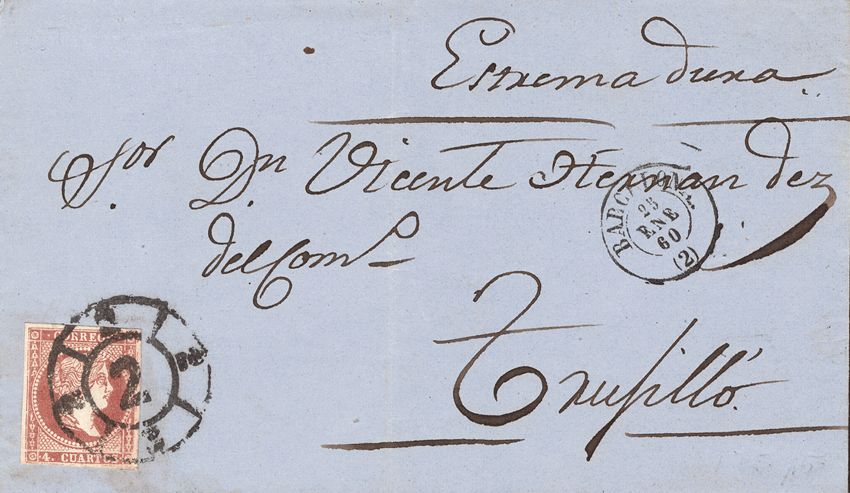 Estremadura.
Sor Dn Vicente Hernandez
del Como
Trujillo.
BARCELONA.
25
ENE
60
(2)
CORREOS
2
4. CUARTOS